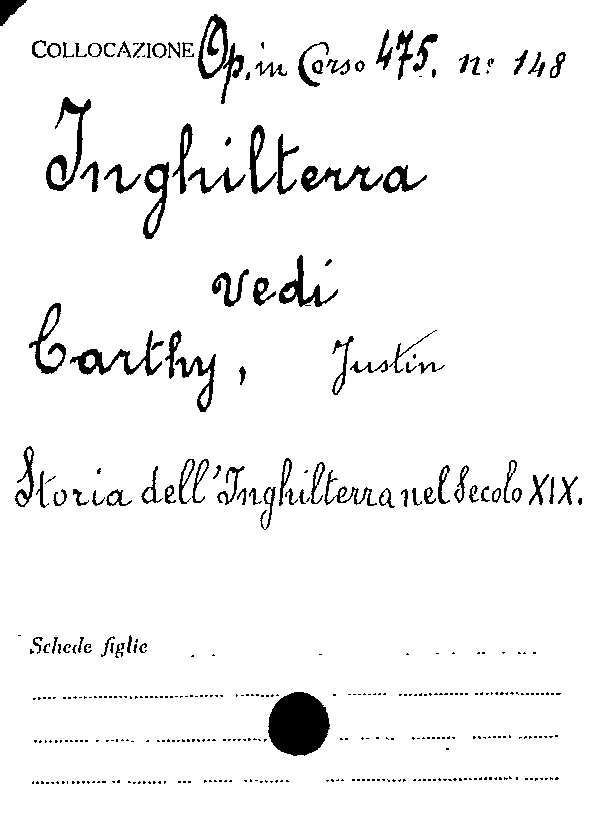 COLLOCAZIONE Op. in Corso 475. nº 148
Inghilterra
vedi
Carthy, Justin
Storia dell'Inghilterra nel Secolo XIX.
Schede figlie